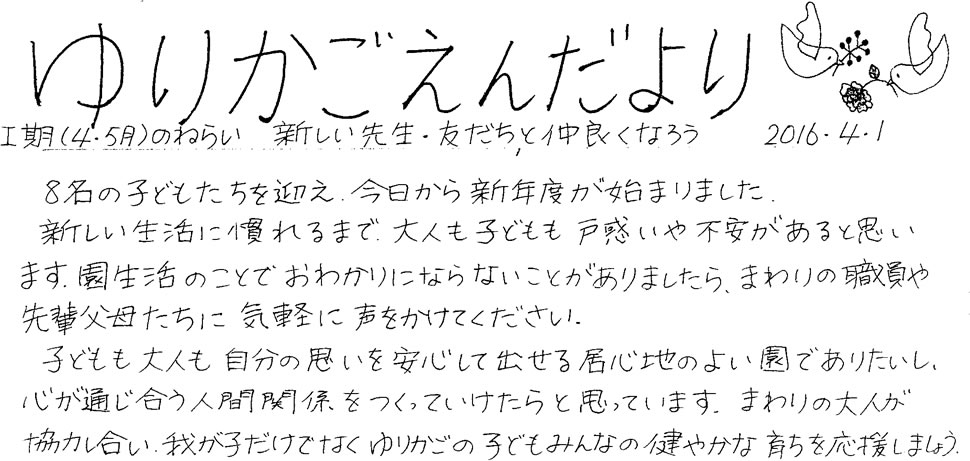 ゆりかごえんだより
I期(4・5月)のねらい 新しい先生・友だちと仲良くなろう 2016・4・1
8名の子どもたちを迎え、今日から新年度が始まりました。
新しい生活に慣れるまで、大人も子どもも戸惑いや不安があると思い
ます。園生活のことでおわかりにならないことがありましたら、まわりの職員や
先輩父母たちに気軽に声をかけてください。
子どもも大人も自分の思いを安心して出せる居心地のよい園でありたいし、
心が通じ合う人間関係をつくっていけたらと思っています。まわりの大人が
協力し合い、我が子だけでなくゆりかごの子どもみんなの健やかな育ちを応援しましょう。